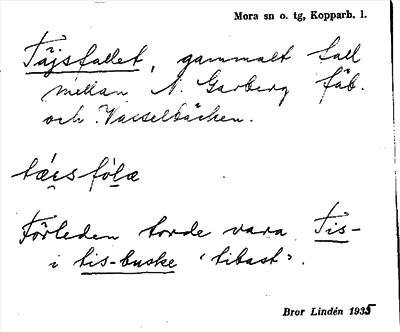 Mora sn o. tg, Kopparb. l.
Täjsfallet, gammalt fall
mellan N. Garberg fäb.
och Vaiselbäcken.
tǽi̯s fo̱læ
Förleden torde vara Tis-
i tis-buske 'tibast'.
Bror Lindén 1935